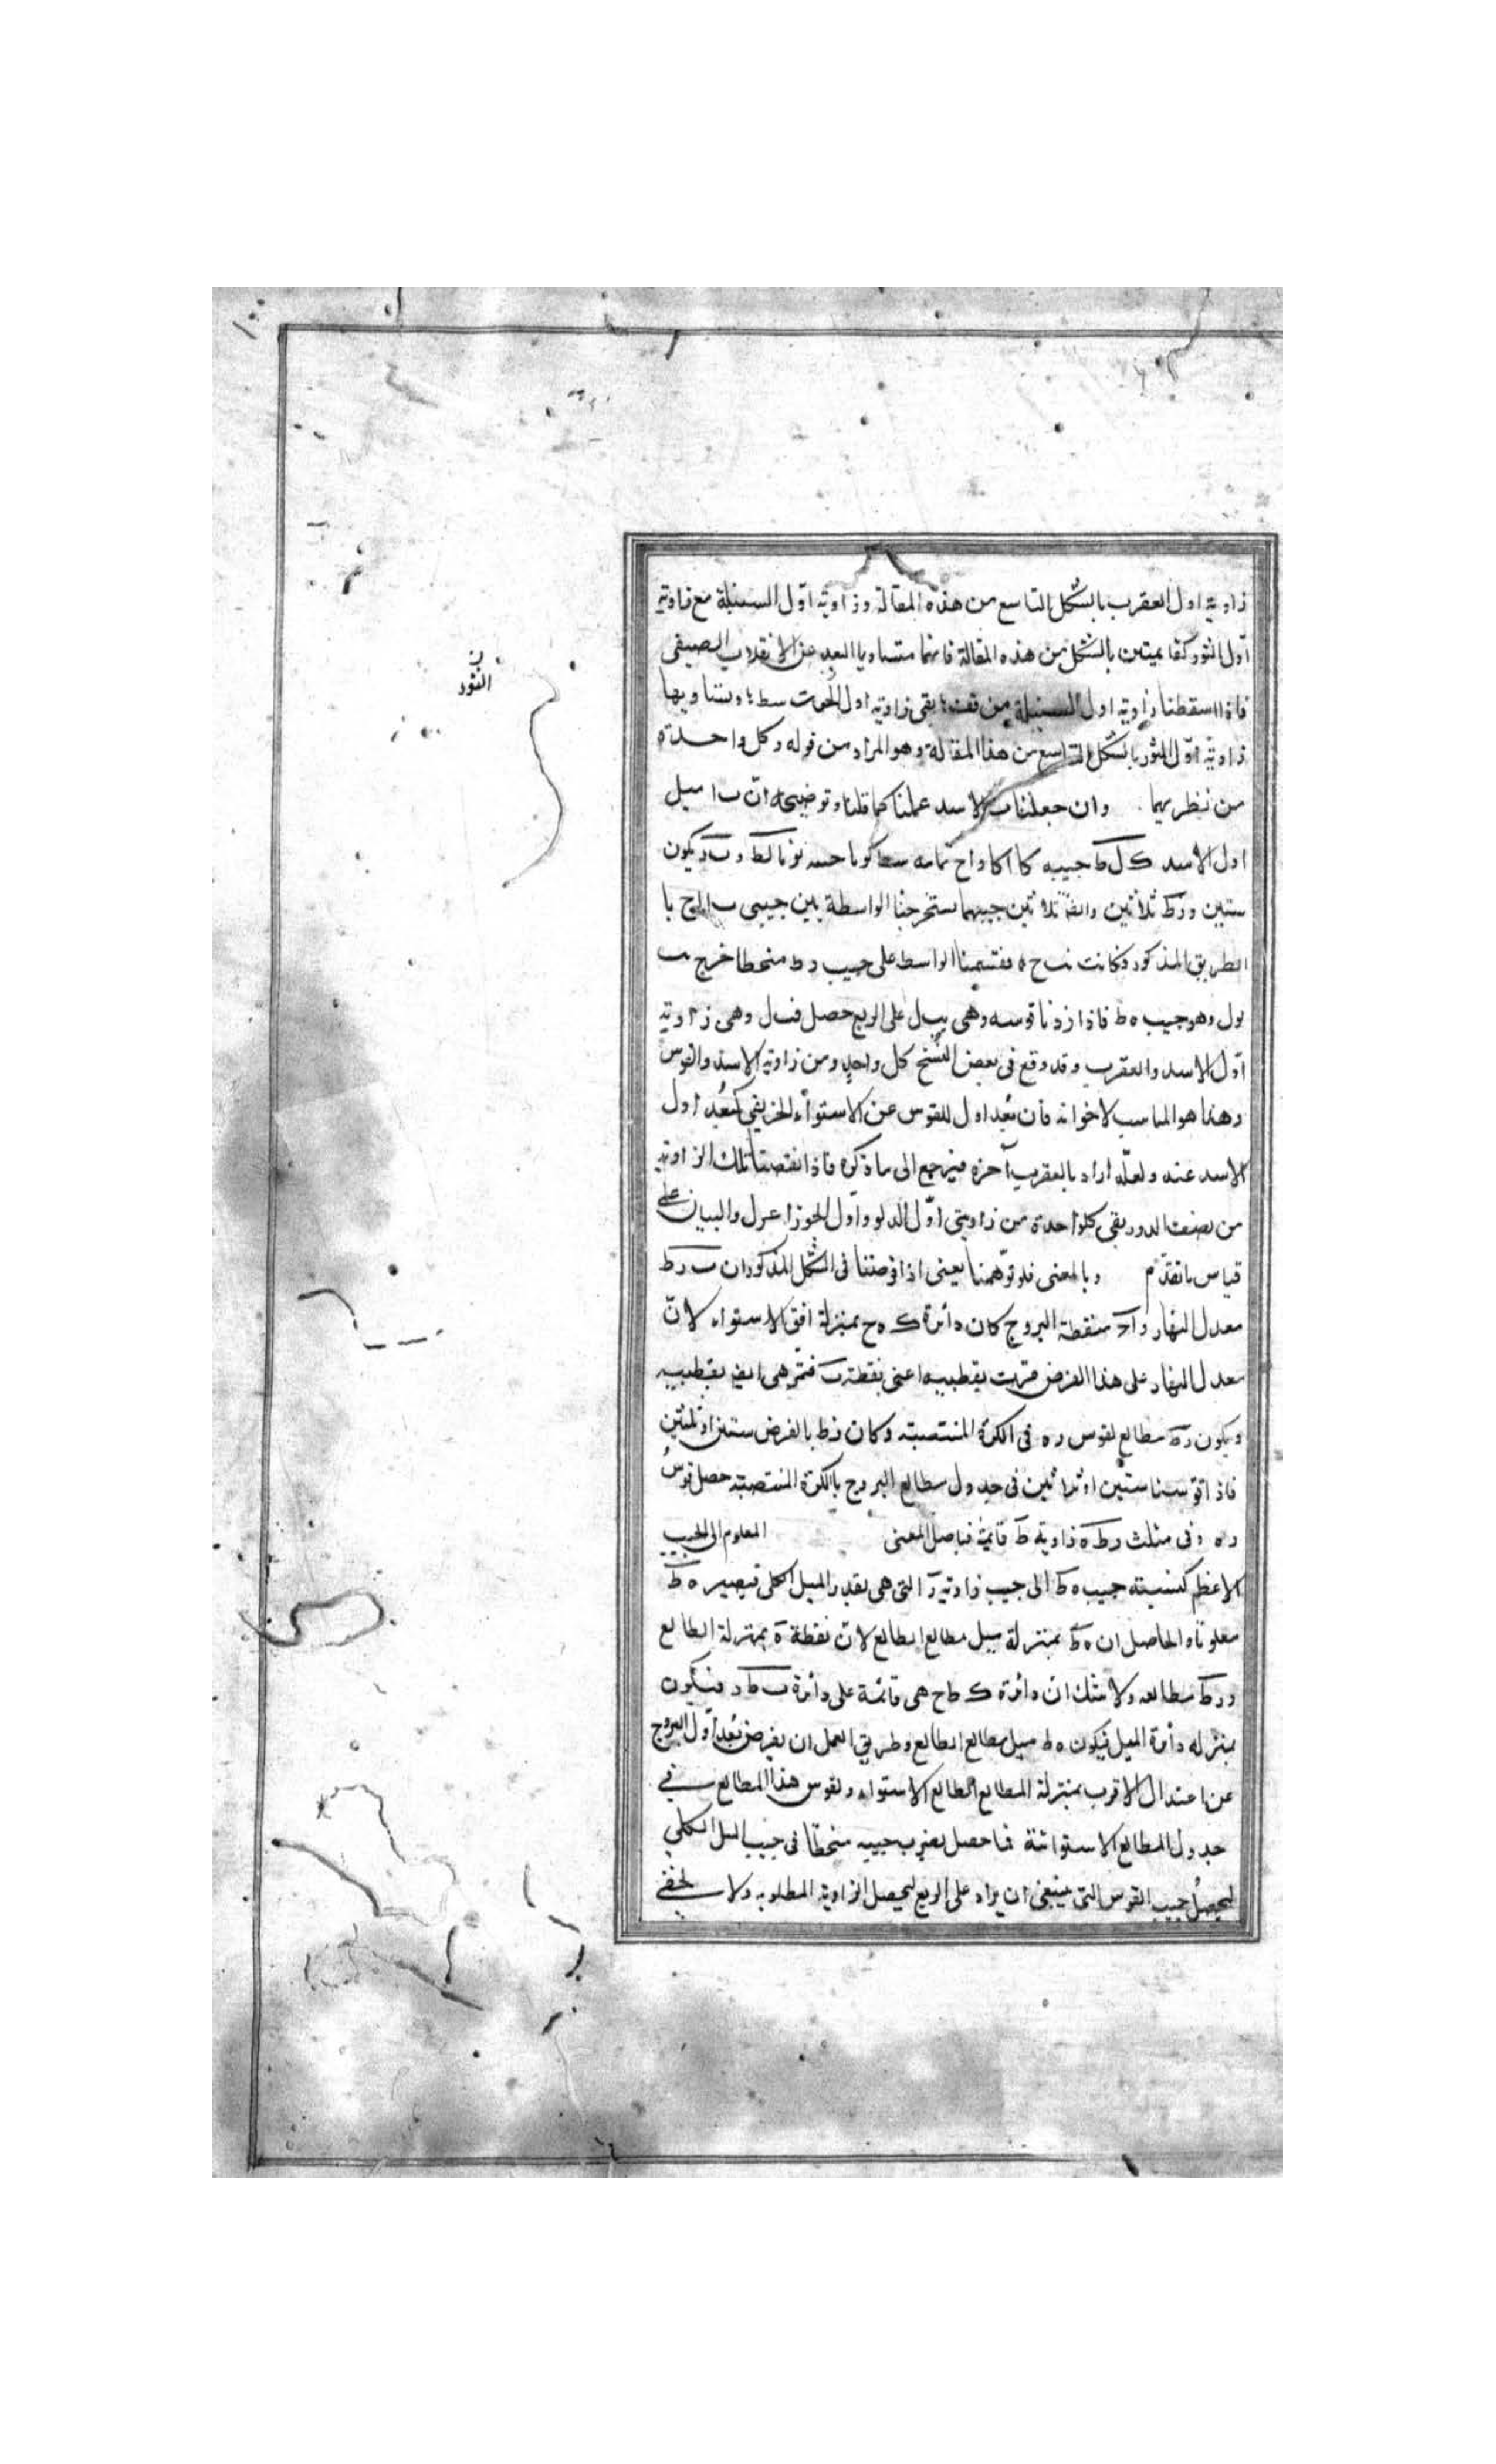 زاوية اول العقرب بالشكل التاسع من هذه المقالة وزاوية اوّل السنبلة مع زاوية
اوّل الثور كقايمتين بالشكل من هذه المقالة فانهما متساويا البعد عن الانقلاب الصيفى
فاذا اسقطنا زاوية اول السنبلة من قف بقى زاوية اول الحوت سط ويساويها
زاوية اوّل الثور بالشكل التاسع من هذا المقالة وهو المراد من قوله وكل واحدة
من نظريهما وان جعلنا ب الاسد عملنا كما قلنا وتوضيحه انّ ب ا ميل
اول الاسد ك ل ط جيبه كا وا ح تمامه سط و ب ر يكون
ستين ورط ثلاثين وايضا ثلاثين جيبهما يستخرجنا الواسطة بين جيبى ب ا ا ح با
الطريق المذكور وكانت فقسمنا الواسط على جيب رط منحطا خرج
لول وهو جيب ه ط فاذا زدنا قوسه وهى على الربع حصل قب ل وهى زاوية
اوّل الاسد والعقرب وقد وقع فى بعض النسخ كل واحد ومن زاوية الاسد والقوس
وهذا هو المناسب لاخواته فان بُعد اول القوس عن الاستواء الخريفى كبُعد اول
الاسد عنه ولعلّه اراد بالعقرب آخره فيرجع الى ما ذكره فاذا نقصنا تلك الزاوية
من نصف الدور بقى كلواحدة من زاويتى اوّل الدلو واول الجوزا عرل والبيان على
قياس ما تقدّم وبالمعنى فلو توّهمنا يعنى اذا فرضنا فى الشكل المذكور ان ب ر ط
معدل النهار واح منقطة البروج كان دائرة ك ه ح بمنزلة افق الاستواء لانّ
معدل النهار على هذا الفرض مرّت بقطبيه اعنى نقطة ب فتمّر هى ايضا بقطبيه
ويكون رط مطالع لقوس ره فى الكرة المنتصبة وكان رط بالفرض ستين او ثلثين
فاذا قوّسنا ستين او ثلاثين فى جدول مطالع البروج بالكرة المنتصبة حصل قوسُ
ره وفى مثلث ر ط ه زاوية ط قائمة فباصل المعنى المعلوم الى الجيب
الاعظم كنسبة جيب ه ط الى جيب زاوية ر التى هى بقدر الميل الكلى فيصير ه ط
معلوما والحاصل ان ه ط بمنزلة ميل مطالع الطالع لانّ نقطة ه بمنزلة الطالع
ورط مطالعه ولا شك ان دائرة ك ط ح هى قائمة على دائرة ب ط ر فيكون
بمنزله دائرة الميل فيكون ه ط ميل مطالع الطالع وطريق العمل ان يفرض بُعد اوّل البروج
عن اعتدال الاقرب بمنزلة المطالع الطالع الاستواء ونقوس هذا المطالع فى
جدول المطالع الاستوائية فما حصل يضرب جيبه منحطا فى جيب الميل الكلى
ليحصلُ جيب القوس التى ينبغى ان يزاد على الربع ليحصل الزاوية المطلوبه ولا يخفى
ن
الثور